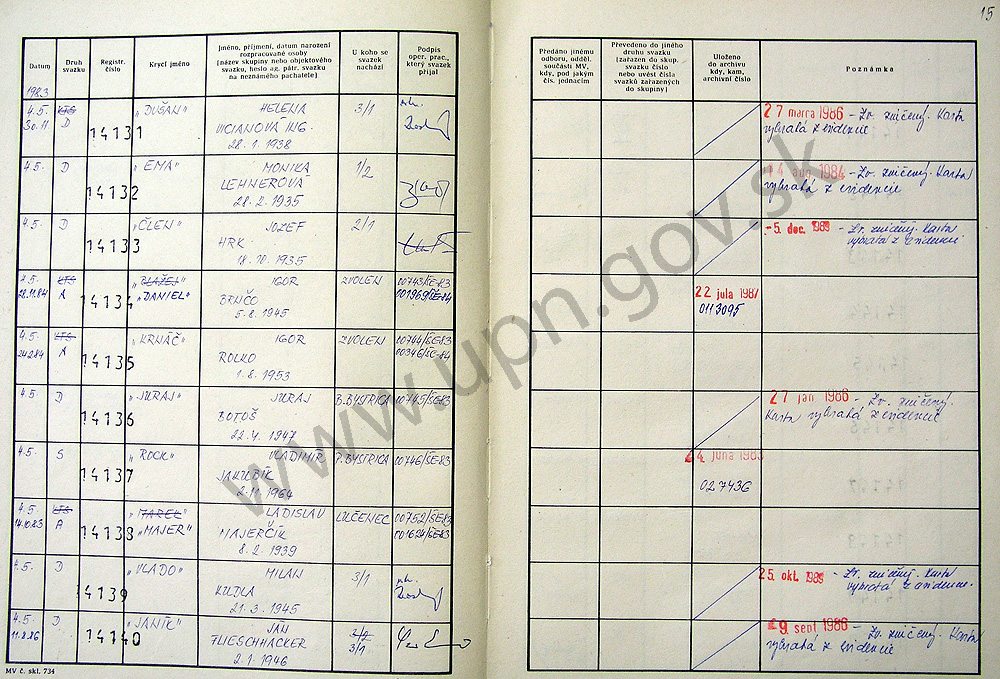 15
Datum
Druh svazku
Registr. číslo
Krycí jméno
Jméno, příjmení, datum narození
rozpracované osoby
(název skupiny nebo objektového
svazku, heslo ag. pátr. svazku
na neznámého pachatele)
U koho se
svazek
nachází
Podpis
oper. prac.,
který svazek
přijal
Předáno jinému
odboru, odděl.
součásti MV,
kdy, pod jakým
čís. jednacím
Převedeno do jiného
druhu svazku
(zařazen do skup.
svazku číslo
nebo uvést čísla
svazků zařazených
do skupiny)
Uloženo
do archivu
kdy, kam,
archivní číslo
Poznámka
1983
4.5. KTS „DUŠAN" HELENA 3/1
30.11 D 14131 VICIANOVÁ ING.
28.1.1938
27 marca 1986 - Zv. zničený. Karta
vybratá z evidencie
4.5. D „EMA" MONIKA 1/2
14132 LEHNEROVÁ
28.2.1935
14 aug 1984 - Zv. zničený. Karta
vybratá z evidencie
4.5. D „ČLEN" JOZEF 2/1
14133 HRK
18.10.1935
-5. dec. - Zv. zničený. Karta
vybratá z evidencie
4.5. KTS „BLAŽEJ" IGOR ZVOLEN 00743/SE-83
28.11.84 A 14134 „DANIEL" BRNČO 001969/SE-84
5.8.1945
22 jula 1987
0113095
4.5. KTS „KRNÁČ" IGOR ZVOLEN 00744/SE-83
24.2.84 A 14135 ROLKO 00346/SE-84
1.8.1953
4.5. D „JURAJ" JURAJ B.BYSTRICA 00745/SE-83
14136 BOTOŠ
22.4.1947
27 jan. 1986 - Zv. zničený.
Karta vybratá z evidencie
4.5. S „ROCK" VLADIMIR P.BYSTRICA 00746/SE-83
14137 JAKUBÍK
2.11.1964
24 juna 1983
027436
4.5. KTS „MAREL" LADISLAV LUČENEC 00752/SE-83
14.10.83 A 14138 „MAJER" MAJERČÍK 001624/SE-83
8.2.1939
4.5. D „VLADO" MILAN 3/1
14139 KUDLA
21.3.1945
25. okt. - Zv. zničený. Karta
vybratá z evidencie.
4.5. D „JANÍK" JÁN 2/2
11.8.86 14140 FLIESCHHACKER 3/1
2.1.1946
9. sept 1986 - Zv. zničený. Karta
vybratá z evidencie
MV č. skl. 734
www.upn.gov.sk